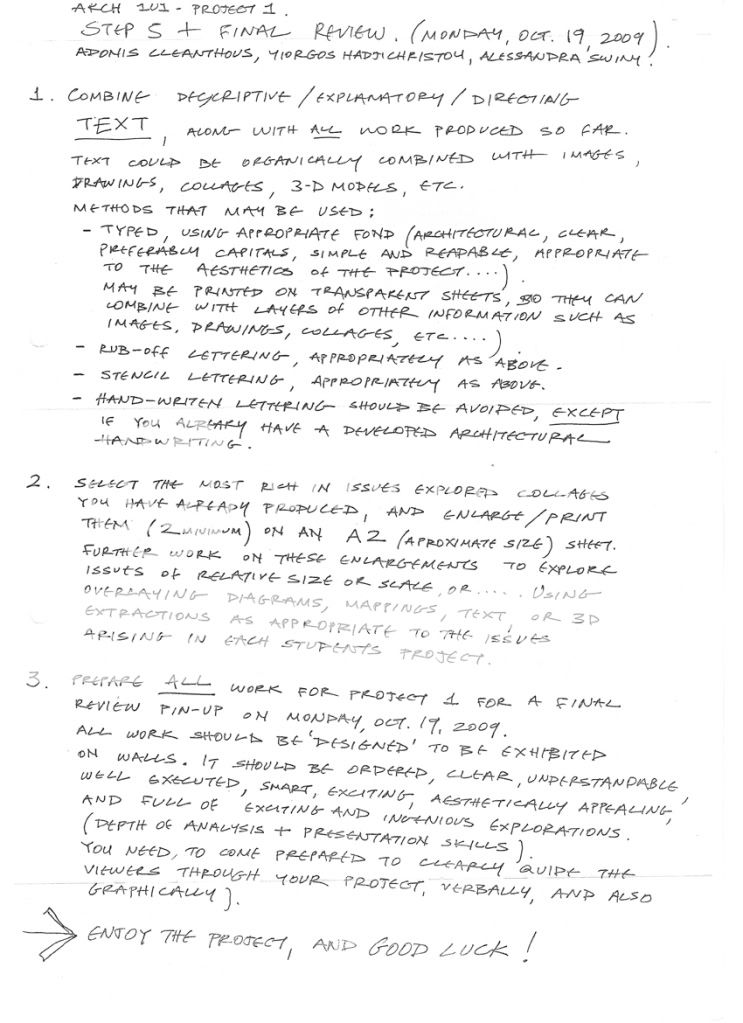 ARCH 101 - PROJECT 1.
STEP 5 + FINAL REVIEW. (MONDAY, OCT. 19, 2009).
ADONIS CLEANTHOUS, YIORGOS HADJICHRISTOU, ALESSANDRA SWINY.
1. COMBINE DESCRIPTIVE/EXPLANATORY/DIRECTING
TEXT, ALONG WITH ALL WORK PRODUCED SO FAR.
TEXT COULD BE ORGANICALLY COMBINED WITH IMAGES,
DRAWINGS, COLLAGES, 3-D MODELS, ETC.
METHODS THAT MAY BE USED:
- TYPED, USING APPROPRIATE FOND (ARCHITECTURAL, CLEAR,
PREFERABLY CAPITALS, SIMPLE AND READABLE, APPROPRIATE
TO THE AESTHETICS OF THE PROJECT....).
MAY BE PRINTED ON TRANSPARENT SHEETS, SO THEY CAN
COMBINE WITH LAYERS OF OTHER INFORMATION SUCH AS
IMAGES, DRAWINGS, COLLAGES, ETC....)
- RUB-OFF LETTERING, APPROPRIATELY AS ABOVE.
- STENCIL LETTERING, APPROPRIATELY AS ABOVE.
- HAND-WRITEN LETTERING SHOULD BE AVOIDED, EXCEPT
IF YOU ALREADY HAVE A DEVELOPED ARCHITECTURAL
HANDWRITING.
2. SELECT THE MOST RICH IN ISSUES EXPLORED COLLAGES
YOU HAVE ALREADY PRODUCED, AND ENLARGE/PRINT
THEM (2 MINIMUM) ON AN A2 (APROXIMATE SIZE) SHEET.
FURTHER WORK ON THESE ENLARGEMENTS TO EXPLORE
ISSUES OF RELATIVE SIZE OR SCALE, OR..... USING
OVERLAYING DIAGRAMS, MAPPINGS, TEXT, OR 3D
EXTRACTIONS AS APPROPRIATE TO THE ISSUES
ARISING IN EACH STUDENTS PROJECT.
3. PREPARE ALL WORK FOR PROJECT 1 FOR A FINAL
REVIEW PIN-UP ON MONDAY, OCT. 19, 2009.
ALL WORK SHOULD BE 'DESIGNED' TO BE EXHIBITED
ON WALLS. IT SHOULD BE ORDERED, CLEAR, UNDERSTANDABLE,
WELL EXECUTED, SMART, EXCITING, AESTHETICALLY APPEALING,
AND FULL OF EXCITING AND INGENIOUS EXPLORATIONS.
(DEPTH OF ANALYSIS + PRESENTATION SKILLS).
YOU NEED, TO COME PREPARED TO CLEARLY GUIDE THE
VIEWERS THROUGH YOUR PROJECT, VERBALLY, AND ALSO
GRAPHICALLY).
ENJOY THE PROJECT, AND GOOD LUCK!